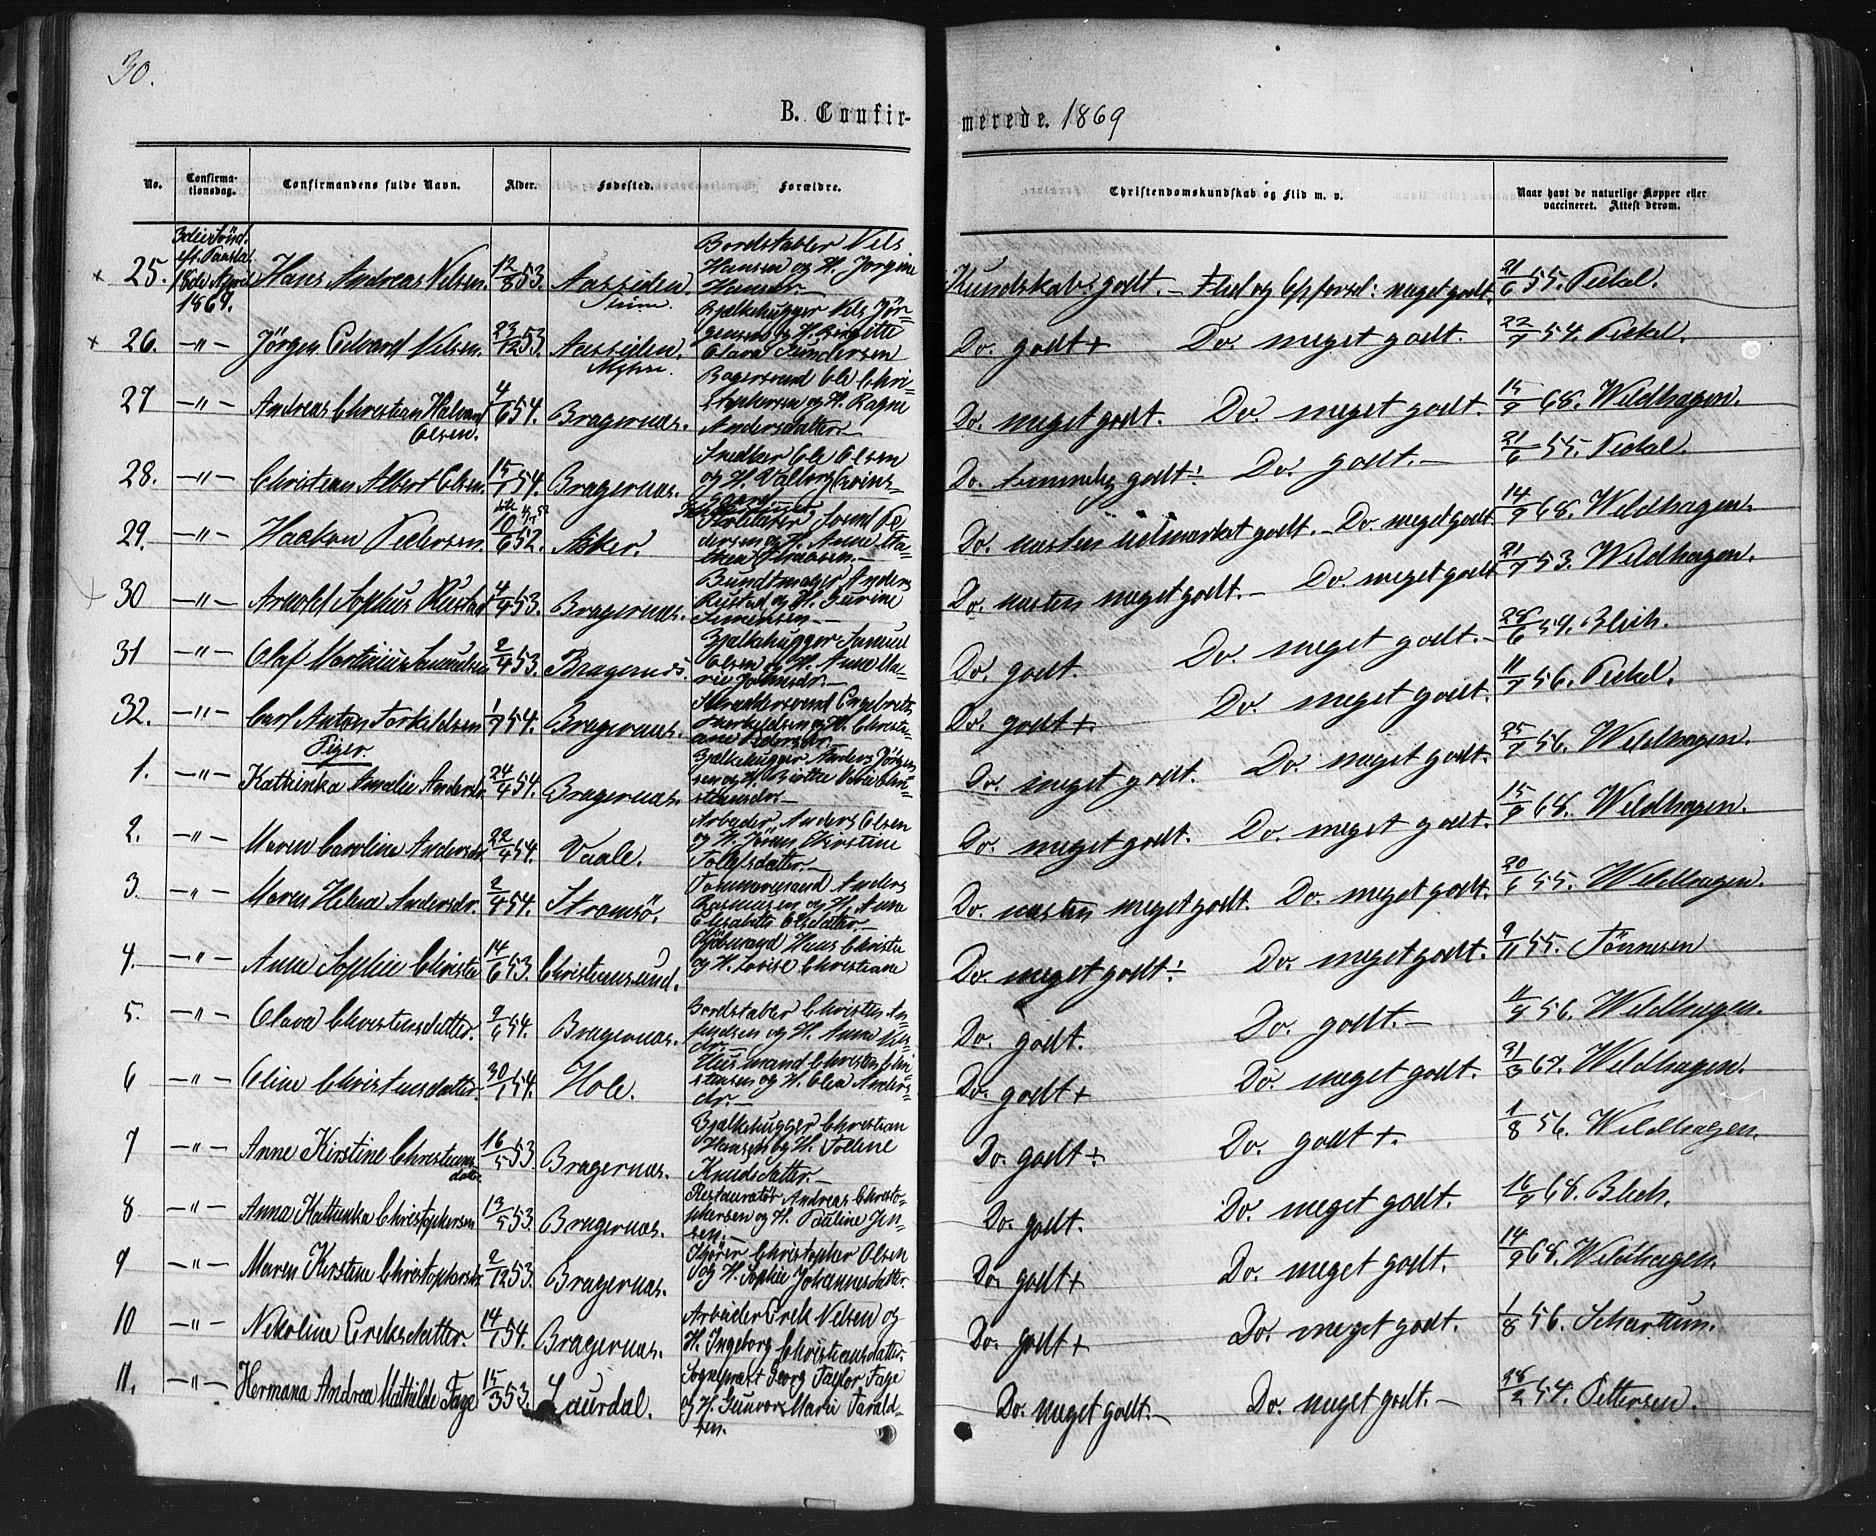 30.
B. Confirmerede. 1869
No. Confirmationsdag. Confirmandens fulde Navn. Alder. Fødested. Forældre. Christendomskundskab og Flid m. v. Naar havt de naturlige Kopper eller vaccineret. Attest derom.
× 25. 3die Sönd. eft. Paaske 18de April 1869. Hans Andreas Nilsen. 12/8 53. Aassiden Bordstabler Nils Hansen og H. Jorgine Kundskab: godt. – Flid og Opførsel: meget godt. 21/6 55. Pickel.
× 26. –"– Jörgen Edvard Nilsen. 23/12 53 Aassiden. Bjelkehugger Nils Jörgensen og H. Birgitte Olava Gundersen Do. godt + Do. meget godt. 22/7 54. Pickel.
27 –"– Andreas Christian Halvard Olsen. 4/6 54. Bragernæs. Bagersvend Ole Christophersen og H. Ragne Andersdatter. Do. meget godt. Do. meget godt. 15/9 68. Wildhagen.
28. –"– Christian Albert Olsen. 15/7 54. Bragernæs. Snedker Ole Olsen og H. Valborg Do. temmelig godt ÷ Do. godt. – 21/6 55. Pickel.
29. –"– Haakon Pedersen 10/6 52. Asker. Do. næsten udmærket godt. – Do. meget godt 14/9 68. Wildhagen.
30 –"– Arnold Sophus Rustad 4/4 53. Bragernæs. Bundtmager Anders Rustad og H. Gurine Simensen. Do. næsten meget godt. – Do. meget godt 21/7 53. Wildhagen.
31 –"– Olaf Martinius Samuelsen 2/4 53. Bragernæs. Bjelkehugger Samuel Olsen og H. Anne Marie Do. godt. Do. meget godt. – 28/6 59. Blich.
32. –"– Carl Anton Torkildsen 1/7 54. Bragernæs. Skræddersvend Engebret Thorkildsen og H. Christiane Pedersdr. Do. godt + Do. meget godt. 11/7 56. Pickel.
Piger.
1. –"– Kathinka Amalie Andersdr. 24/4 54. Bragernæs. Bjelkehugger Anders Jörgensen og H. Do. meget godt. Do. meget godt. 25/7 56. Wildhagen.
2. –"– Maren Caroline Andersdr. 22/4 54. Vaale. Arbeider Anders Olsen og H. Jöran Kirstine Tolefsdatter. Do. meget godt. Do. meget godt. 15/9 68. Wildhagen.
3. –"– Maren Helene Andersdr. 2/4 54. Strømsö. Tömmermand Anders Rasmusen og H. Anne Elisabeth Olsdatter. Do. næsten meget godt. Do. meget godt. 20/6 55. Wildhagen.
4. –"– Anna Sophie Christie 14/6 53. Christiansund. Kjöbmand Hans Christie og H. Lovise Christiane Do. meget godt ÷ Do. meget godt. 9/11 55. Tönnesen
5. –"– Olava Christensdatter. 9/6 54. Bragernæs. Bordstabler Christen Amundsen og H. Anne Do. godt. Do. godt. – 11/7 56. Wildhagen.
6 –"– Oline Christensdatter. 30/1 54. Hole. Husmand Christen Christensen og H. Olea Andersdr. Do. godt + Do. meget godt. 31/3 67. Wildhagen.
7 –"– Anne Kirstine Christiansdatter. 16/5 53. Bragernæs. Bjelkehugger Christian Hansen og H. Tolline Knudsdatter. – Do. godt ÷ Do. godt +. 1/8 56. Wildhagen.
8 –"– Anna Kathinka Christophersen 13/5 53. Bragernæs. Restauratör Andreas Christophersen og H. Pauline Jensen. – Do. godt. Do. meget godt. 16/9 68. Blich.
9 –"– Maren Kirstine Christophersdr. 2/12 53. Bragernæs. Christopher Olsen og H. Sophie Johannesdatter. Do. godt + Do. meget godt. 14/9 68. Wildhagen.
10 –"– Nikoline Eriksdatter. 14/1 54. Bragernæs. Arbeider Erik Nilsen og H. Ingeborg Christiansdatter. Do. godt + Do. meget godt. 1/8 56. Schartum.
11. –"– Hermana Andrea Mathilde Fage 15/3 53. Laurdal. Sognepræst Georg Taylor Fage og H. Gunvor Marie Taraldsen. Do. meget godt. – Do. meget godt. – 28/2 54. Pettersen.